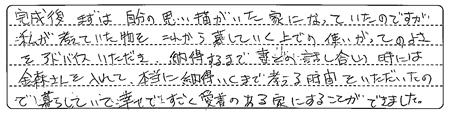 完成後 まずは 自分の思い描がいた家になっていたのですが
私が考えていた物を これから暮していく上での 使いがってのよさ
をアドバイスいただき 納得するまで 妻との話し合い 時には
金森さんを入れて、本当に納得いくまで考える時間をいただいたの
で 暮らしていて幸せで すごく愛着のある家にすることができました。